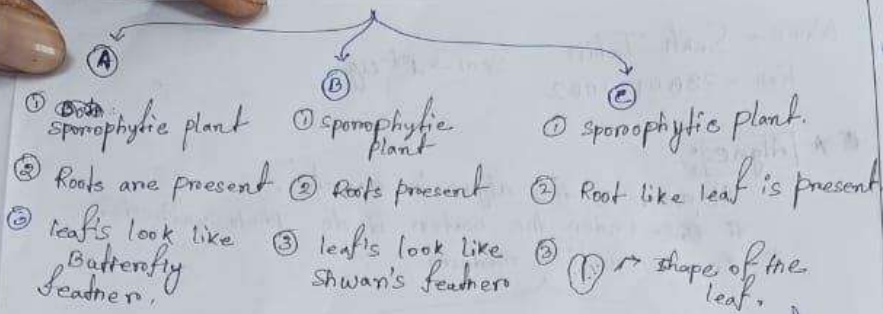 A
① sporophytic plant
② Roots are present
③ leafs look like
Batterofly
feather.
B
① sporophytic
plant
② Roots present
③ leaf's look like
Shwan's feather
C
① sporoophytic plant.
② Root like leaf is present
③ → shape of the
leaf.